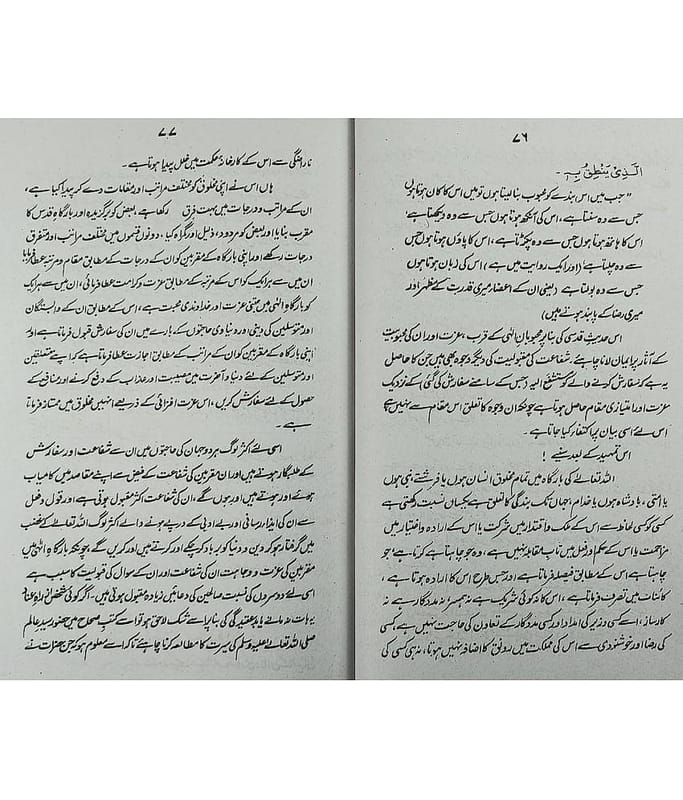 ۷۶
الَّذِیْ یَنْطِقُ بِہٖ۔
”جب میں اس بندے کو محبوب بنا لیتا ہوں تو میں اس کا کان ہوتا ہوں
جس سے وہ سنتا ہے، اس کی آنکھ ہوتا ہوں جس سے وہ دیکھتا ہے
اس کا ہاتھ ہوتا ہوں جس سے وہ پکڑتا ہے، اس کا پاؤں ہوتا ہوں جس
سے وہ چلتا ہے (اور ایک روایت میں ہے) اس کی زبان ہوتا ہوں
جس سے وہ بولتا ہے (یعنی ان کے اعضار میری قدرت کے مظہر اور
میری رضا کے پابند ہوتے ہیں)
اس حدیثِ قدسی کی بنا پر محبوبانِ الٰہی کے قرب، عزت اور ان کی محبوبیت
کے آثار پر ایمان لانا چاہئے، شفاعت کی مقبولیت کی دیگر وجوہ بھی ہیں جن کا حاصل
یہ ہے کہ سفارش کرنے والے کو متشفع الیہ (جس کے سامنے سفارش کی گئی) کے نزدیک
عزت اور امتیازی مقام حاصل ہوتا ہے چونکہ ان وجوہ کا تعلق اس مقام سے نہیں ہے
اس لئے اسی بیان پر اکتفار کیا جاتا ہے۔
اس تمہید کے بعد سنیے!
اللہ تعالےٰ کی بارگاہ میں تمام مخلوق انسان ہوں یا فرشتے نبی ہوں
یا امتی، بادشاہ ہوں یا خدام، جہاں تک بندگی کا تعلق ہے یکساں نسبت رکھتی ہے
کسی کو کسی لحاظ سے اس کے ملک و اقتدار میں شرکت یا اس کے ارادہ و اختیار میں
مزاحمت یا اس کے حکم و فعل میں تابِ مقابلہ نہیں ہے، وہ جو چاہتا ہے کرتا ہے جو
چاہتا ہے اس کے مطابق فیصلہ فرماتا ہے اور جس طرح اس کا ارادہ ہوتا ہے،
کائنات میں تصرف فرماتا ہے، اس کا نہ کوئی شریک ہے نہ ہمسر، نہ مددگار ہے نہ
کارساز، اسے کسی وزیر کی امداد اور کسی مددگار کے تعاون کی حاجت نہیں ہے، کسی
کی رضا اور خوشنودی سے اس کی مملکت میں رونق کا اضافہ نہیں ہوتا، نہ ہی کسی کی
۷۷
ناراضگی سے اس کے کارخانۂ حکمت میں خلل پیدا ہوتا ہے۔
ہاں اس نے اپنی مخلوق کو مختلف مراتب اور مقامات دے کر پیدا کیا ہے،
ان کے مراتب و درجات میں بہت فرق رکھا ہے، بعض کو برگزیدہ اور بارگاہِ قدس کا
مقرب بنایا اور بعض کو مردود، ذلیل اور گمراہ کیا، دونوں قسموں میں مختلف مراتب اور متفرق
درجات رکھے اور اپنی بارگاہ کے مقربین کو ان کے درجات کے مطابق مقام و مرتبہ عطا فرمایا
ان میں سے ہر ایک کو اس کے مرتبہ کے مطابق عزت و کرامت عطا فرمائی، ان میں سے ہر ایک
کو بارگاہِ الٰہی میں جتنی عزت اور خداوندی محبت ہے، اس کے مطابق ان کے وابستگان
اور متوسلین کی دینی اور دنیاوی حاجتوں کے بارے میں ان کی سفارش قبول فرماتا ہے اور
اپنی بارگاہ کے مقربین کو ان کے مراتب کے مطابق اجازت عطا فرماتا ہے کہ اپنے متعلقین
اور متوسلین کے لئے دنیا و آخرت میں مصیبت اور عذاب کے دفع کرنے اور منافع کے
حصول کے لئے سفارش کریں، اس عزت افزائی کے ذریعے انہیں مخلوق میں ممتاز فرماتا
ہے۔
اسی لئے اکثر لوگ ہر دو جہان کی حاجتوں میں ان سے شفاعت اور سفارش
کے طلبگار ہوتے ہیں اور ان مقربین کی شفاعت کے فیض سے اپنے مقاصد میں کامیاب
ہوئے اور ہوتے ہیں اور ہوں گے، ان کی شفاعت اکثر مقبول ہوتی ہے اور قول و فعل
سے ان کی ایذا رسانی اور بے ادبی کے درپے ہونے والے اکثر لوگ اللہ تعالےٰ کے غضب
میں گرفتار ہو کر دین و دنیا کو برباد کر چکے اور کرتے ہیں اور کریں گے، چونکہ بارگاہِ الٰہی میں
مقربین کی عزت و وجاہت ان کی شفاعت اور ان کے سوال کی قبولیت کا سبب ہے
اسی لئے دوسروں کی نسبت صالحین کی دعائیں زیادہ مقبول ہوتی ہیں، اگر کوئی شخص از راہِ عناد
یہ بات نہ مانے یا بد عقیدگی کی بنا پر اسے شک لاحق ہو تو اسے کتبِ صحاح میں حضور سیدِ عالم
صلی اللہ تعالےٰ علیہ وسلم کی سیرت کا مطالعہ کرنا چاہئے تاکہ اسے معلوم ہو کہ جن حضرات نے